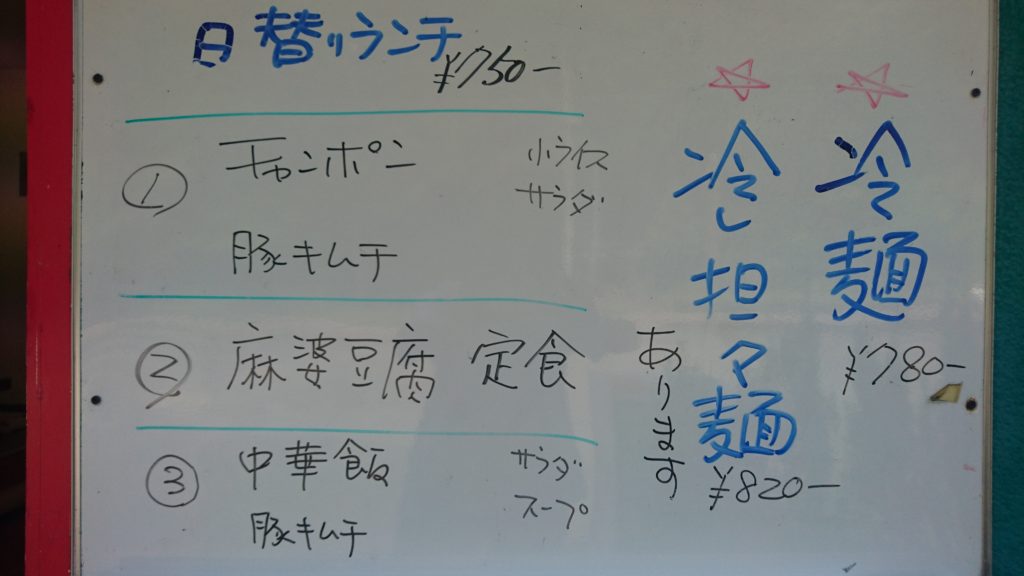 日替りランチ
¥750-
①
チャンポン
小ライス
サラダ
豚キムチ
②
麻婆豆腐 定食
③
中華飯
サラダ
スープ
豚キムチ
☆冷麺
¥780-
☆冷し担々麺
¥820-
あります